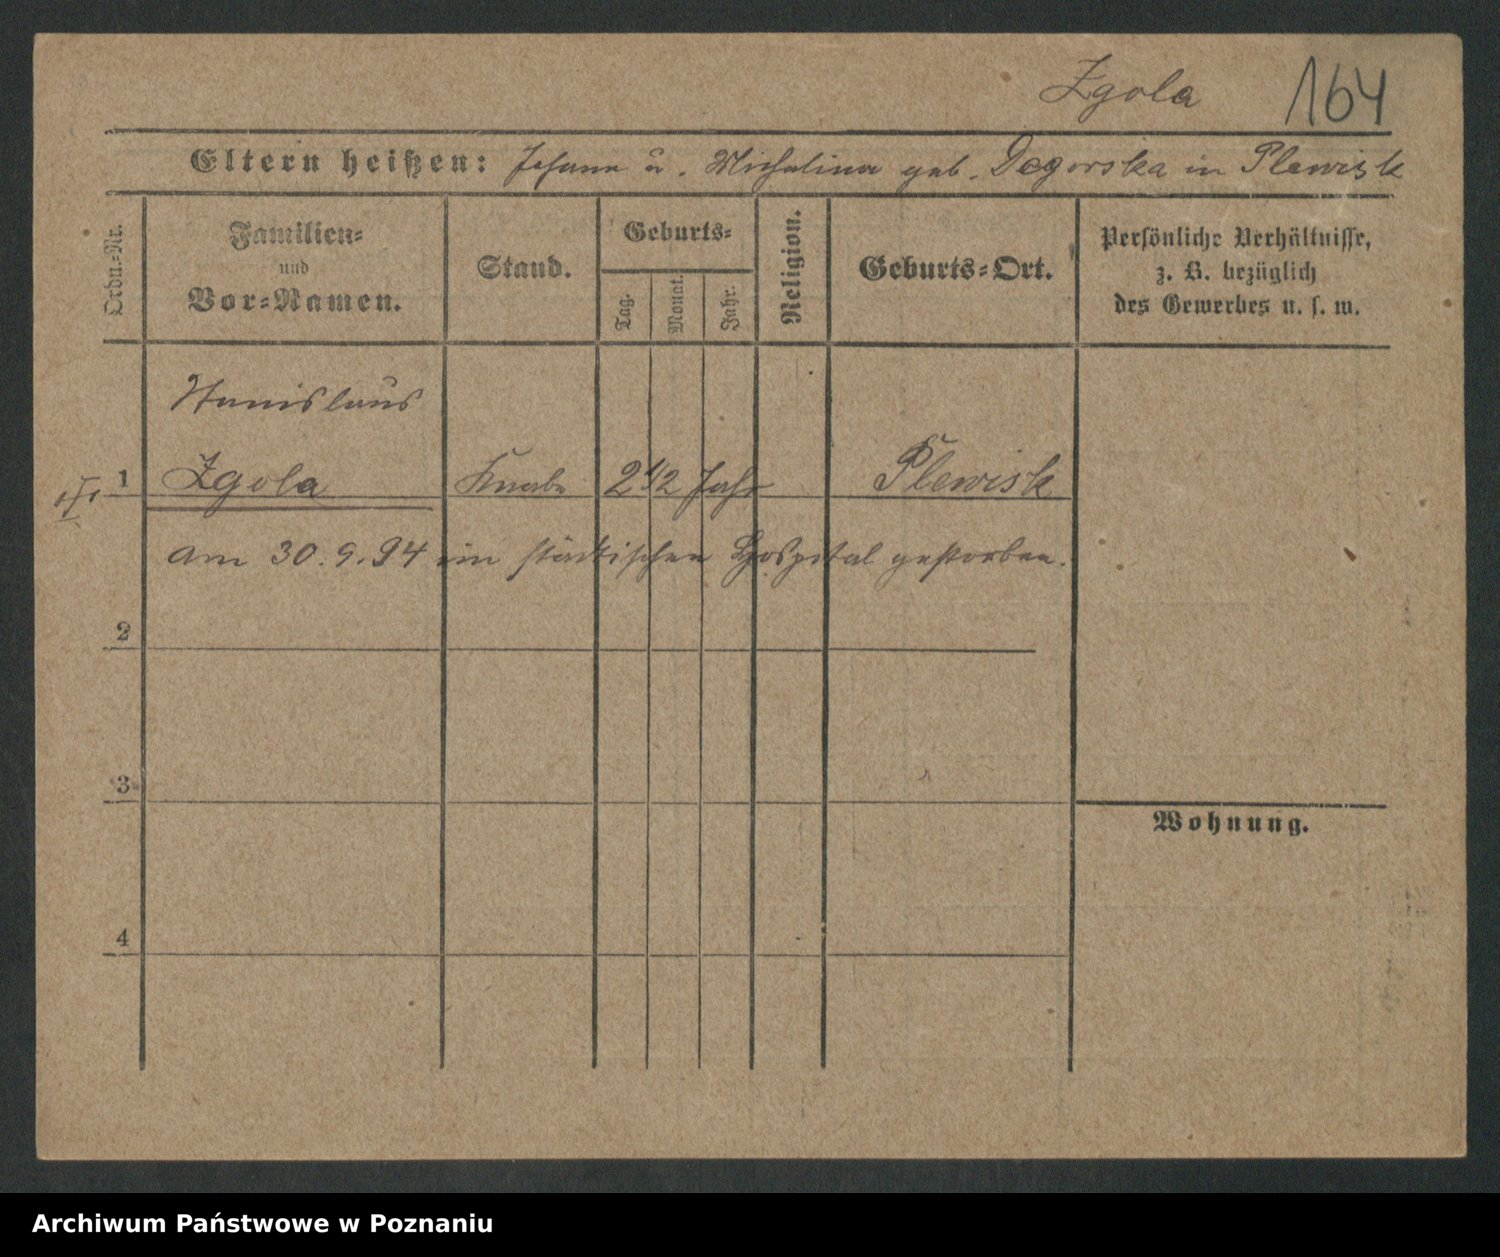 Zgola 164
Eltern heißen: Johann u. Michalina geb. Degorska in Plewisk
Ordn.-Nr.
Familien-
und
Vor-Namen.
Stand.
Geburts-
Tag.
Monat.
Jahr.
Religion.
Geburts-Ort.
Persönliche Verhältnisse,
z. B. bezüglich
des Gewerbes u. s. w.
Stanislaus
1 Zgola Knabe 2 1/2 Jahr Plewisk
am 30.9.94 im städtischen Hospital gestorben.
2
3
Wohnung.
4
Archiwum Państwowe w Poznaniu